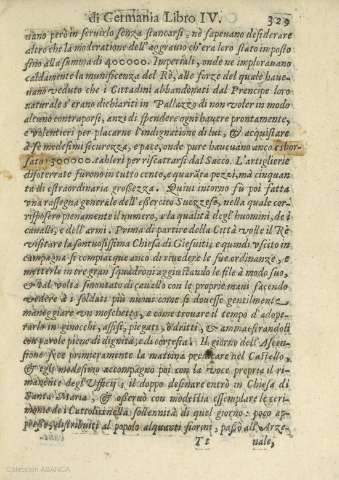 di Germania Libro IV. 329
ciano però in servirlo senza stancarsi, nè sapeuano desiderare
altro che la moderatione dell'aggrauio ch'era loro stato imposto
sino alla summa di 400000. Imperiali, onde ne implorauano
caldamente la munificenza del Rè, alle forze del quale haue-
uano veduto che i Cittadini abbandonati dal Prencipe loro
naturale s'erano dichiariti in Pallazzo di non voler in modo
alcuno contraporsi, anzi di spendere ogni hauere prontamente,
e volentieri per placarne l'indignatione di lui, & acquistare
à se medesimi sicurezza, e pace, onde pure haueuano anco esbor-
sato 300000. talleri per riscattarsi dal Sacco. L'artiglierie
disoterrate furono in tutto cento, e quaranta pezzi, mà cinquan
ta di estraordinaria grossezza. Quiui intorno fù poi fatta
vna rassegna generale dell'essercito Suezzese, nella quale cor-
rispossero pienamente il numero, e la qualità degl'huomini, de i
caualli, e dell'armi. Prima di partire della Città volle il Rè
visitare la sontuosissima Chiesa di Giesuiti, e quindi vscito in
campagna si compiacque anco di riuedere le sue ordinanze, e
metterle in tre gran squadroni aggiustando le file à modo suo,
& tal volta smontato di cauallo con le proprie mani facendo
vedere à i soldati più nuoui come si douesse gentilmente
maneggiare vn moschetto, e come trouare il tempo d'adope-
rarlo in ginocchi, assisi, piegati, & dritti, & ammaestrandoli
con parole piene di dignità, e di cortesia. Il giorno dell'Ascen-
sione fece primieramente la mattina predicare nel Castello,
& egli medesimo accompagnò poi con la voce propria il ri-
manente degl'Vfficij; il doppo desinare entrò in Chiesa di
Santa Maria, & osseruò con modestia essemplare le ceri-
monie de i Cattolici nella sollennità di quel giorno: poco ap-
presso, distribuiti al popolo alquanti fiorini, passò all'Arze-
Tt nale,
Colección ABANCA